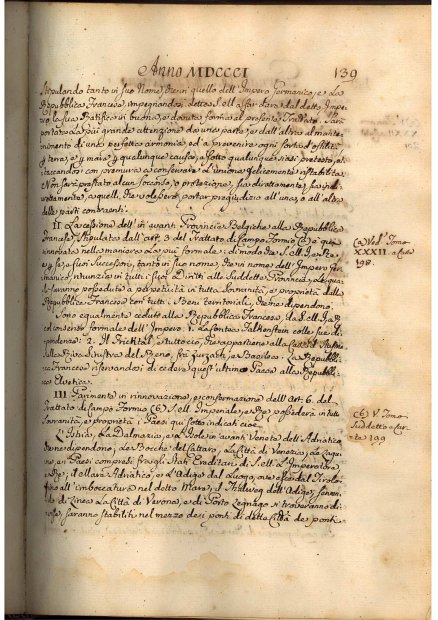 Anno MDCCCI
139
stipulando tanto in suo Nome, che in quello dell'Impero Germanico, e La
Repubblica Francese, impegnandosi detta S. M. a far dare dal detto Impe-
ro la sua Ratifica in buona, e dovuta forma al presente Trattato. Sarà
portata la più grande attenzione da una parte, e dall'altra al mante-
nimento di una perfetta armonia ed a prevenire ogni sorta d'ostilità
p. terra, e p. mare p. qualunque causa, e sotto qualunque siasi pretesto, at-
taccandosi con premura a conservare L'unione felicemente ristabilita.
Non sarà prestato alcun soccorso, o protezione, sia direttamente, sia indi-
rettamente, a quelli, che volessero portar pregiudizio all'una, o all'altra
delle parti contraenti.
II. La cessione dell'in avanti Provincie Belgiche alla Repubblica
Francese, stipulata dall'art. 3. del Trattato di Campo Formio (a) è quì
rinnovata nella maniera La più formale; di modo che S. M. I. e Re
p. se, e suoi Successori, tanto in suo nome, che in nome dell'Impero Ger-
manico, rinunzia in tutti i suoi Diritti alle suddette Provincie, Le qua-
li saranno possedute a perpetuità in tutta Sovranità, e proprietà dalla
Repubblica Francese con tutti i Beni territoriali, che ne dipendono.
Sono egualmente cedute alla Repubblica Francese, da S. M. I. e R.
e di consenso formale dell'Impero: 1. La Contea Falkenstein colle sue di-
pendenze: 2. Il Fricktal, e tutto ciò, che appartiene alla Casa d'Austria
sulla Riva Sinistra del Reno, frà Zurzach, e Basilea: La Repubbli-
ca Francese riservandosi di cedere quest'ultimo Paese alla Repubbli-
ca Elvetica.
III. Parimente in rinnovazione, e confermazione dell'Art. 6. del
Trattato di Campo Formio (b) S. M. Imperiale, e Re possederà in tutta
sovranità, e proprietà i Paesi quì sotto indicati cioè.
L'Istria, La Dalmazia, e Le Isole in avanti Venete dell'Adriatico,
che ne dipendono, Le Bocche del Cattaro, La Città di Venezia, Le Lagu-
ne, e i Paesi compresi fra gli Stati Ereditarj di S. M. L'Imperatore,
e Re; il Mare Adriatico, e L'Adige dal Luogo, ove esce dal Tirolo
fino all'imboccatura nel detto Mare; il Thalweg dell'Adige, serven-
do di Linea. La Città di Verona, e di Porto Legnago si troveranno di-
vise, saranno stabiliti nel mezzo dei ponti di dette Città de' ponti
(a) Ved. Tomo
XXXII. a Carte
198.
(b) V. Tomo
Suddetto a Car-
te 199